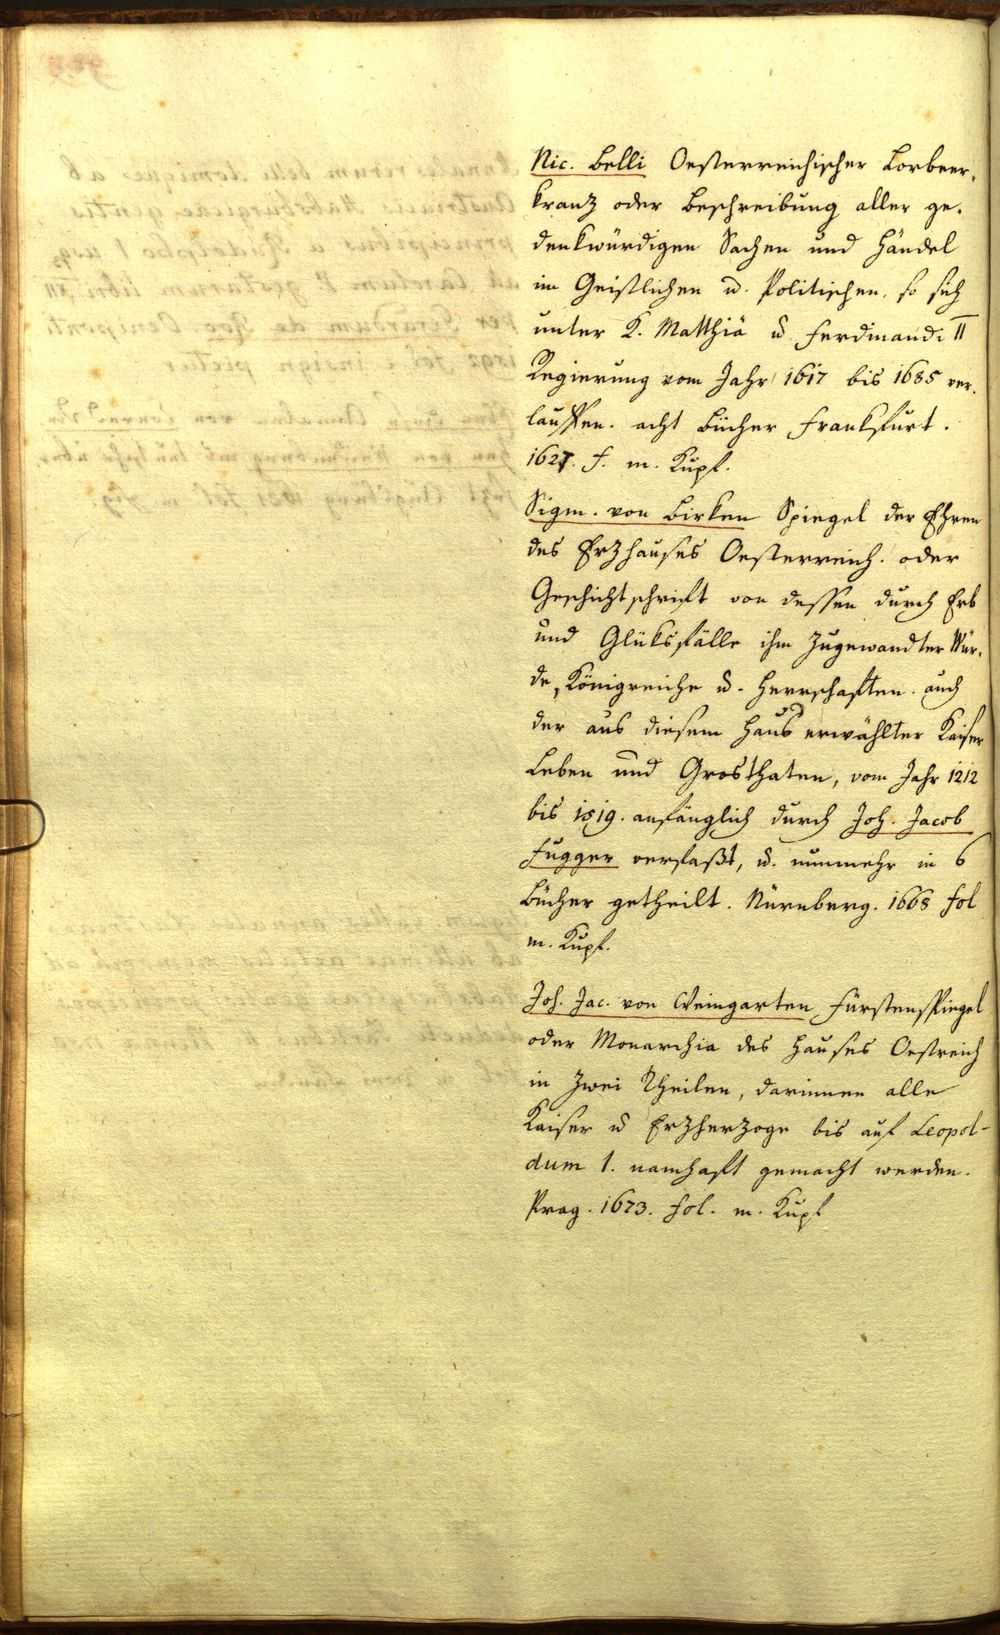 Nic. Belli Oesterreichischer Lorbeer-
kranz oder Beschreibung aller ge-
denkwürdigen Sachen und Händel
im Geistlichen u. Politischen, so sich
unter K. Matthiä u Ferdinandi II
Regierung vom Jahr 1617 bis 1685 ver-
lauffen. acht Bücher Frankfurt.
1627. f. m. Kupf.
Sigm. von Birken Spiegel der Ehren
des Erzhauses Oesterreich. oder
Geschichtschrift von dessen durch Erb
und Glüksfälle ihm zugewandter Wür-
de, Königreiche u. Herrschaften. auch
der aus diesem Haus erwählter Kaiser
Leben und Grosthaten, vom Jahr 1212
bis 1519. anfänglich durch Joh. Jacob
Fugger verfaßt, u. nunmehr in 6
Bücher getheilt. Nürnberg. 1668 fol
m. Kupf.
Joh. Jac. von Weingarten Fürstenspiegel
oder Monarchia des Hauses Oestreich
in zwei Theilen, darinnen alle
Kaiser u Erzherzoge bis auf Leopol-
dum 1. namhaft gemacht werden.
Prag. 1673. fol. m. Kupf